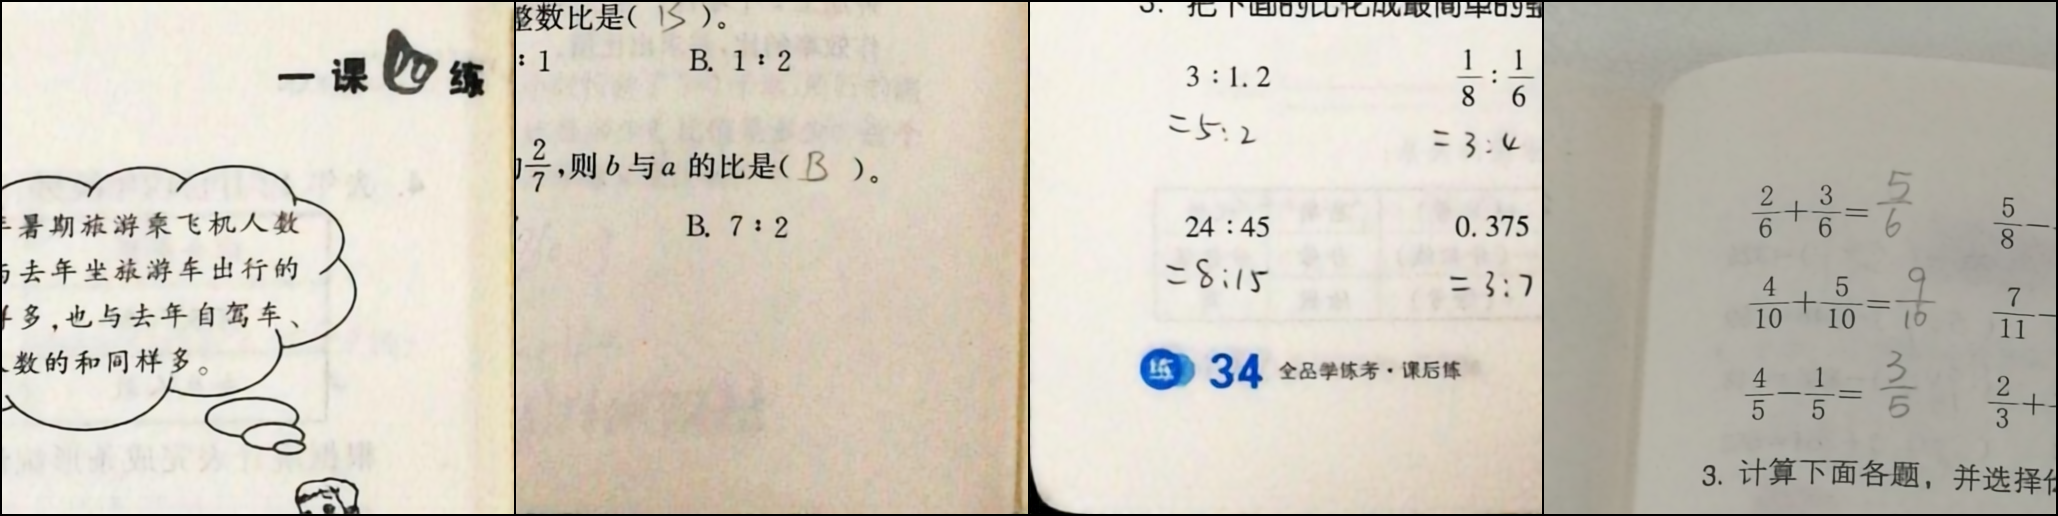 一课 练
暑期旅游乘飞机人数
与去年坐旅游车出行的
样多,也与去年自驾车、
人数的和同样多。
整数比是( B )。
: 1 B. 1 : 2
2/7,则 b 与 a 的比是( B )。
B. 7 : 2
3. 把下面的比化成最简单的整
3 : 1.2 1/8 : 1/6
=5:2 =3:4
24 : 45 0.375
=8:15 =3:7
练 34 全品学练考·课后练
2/6 + 3/6 = 5/6 5/8 −
4/10 + 5/10 = 9/10 7/11 −
4/5 − 1/5 = 3/5 2/3 +
3. 计算下面各题，并选择